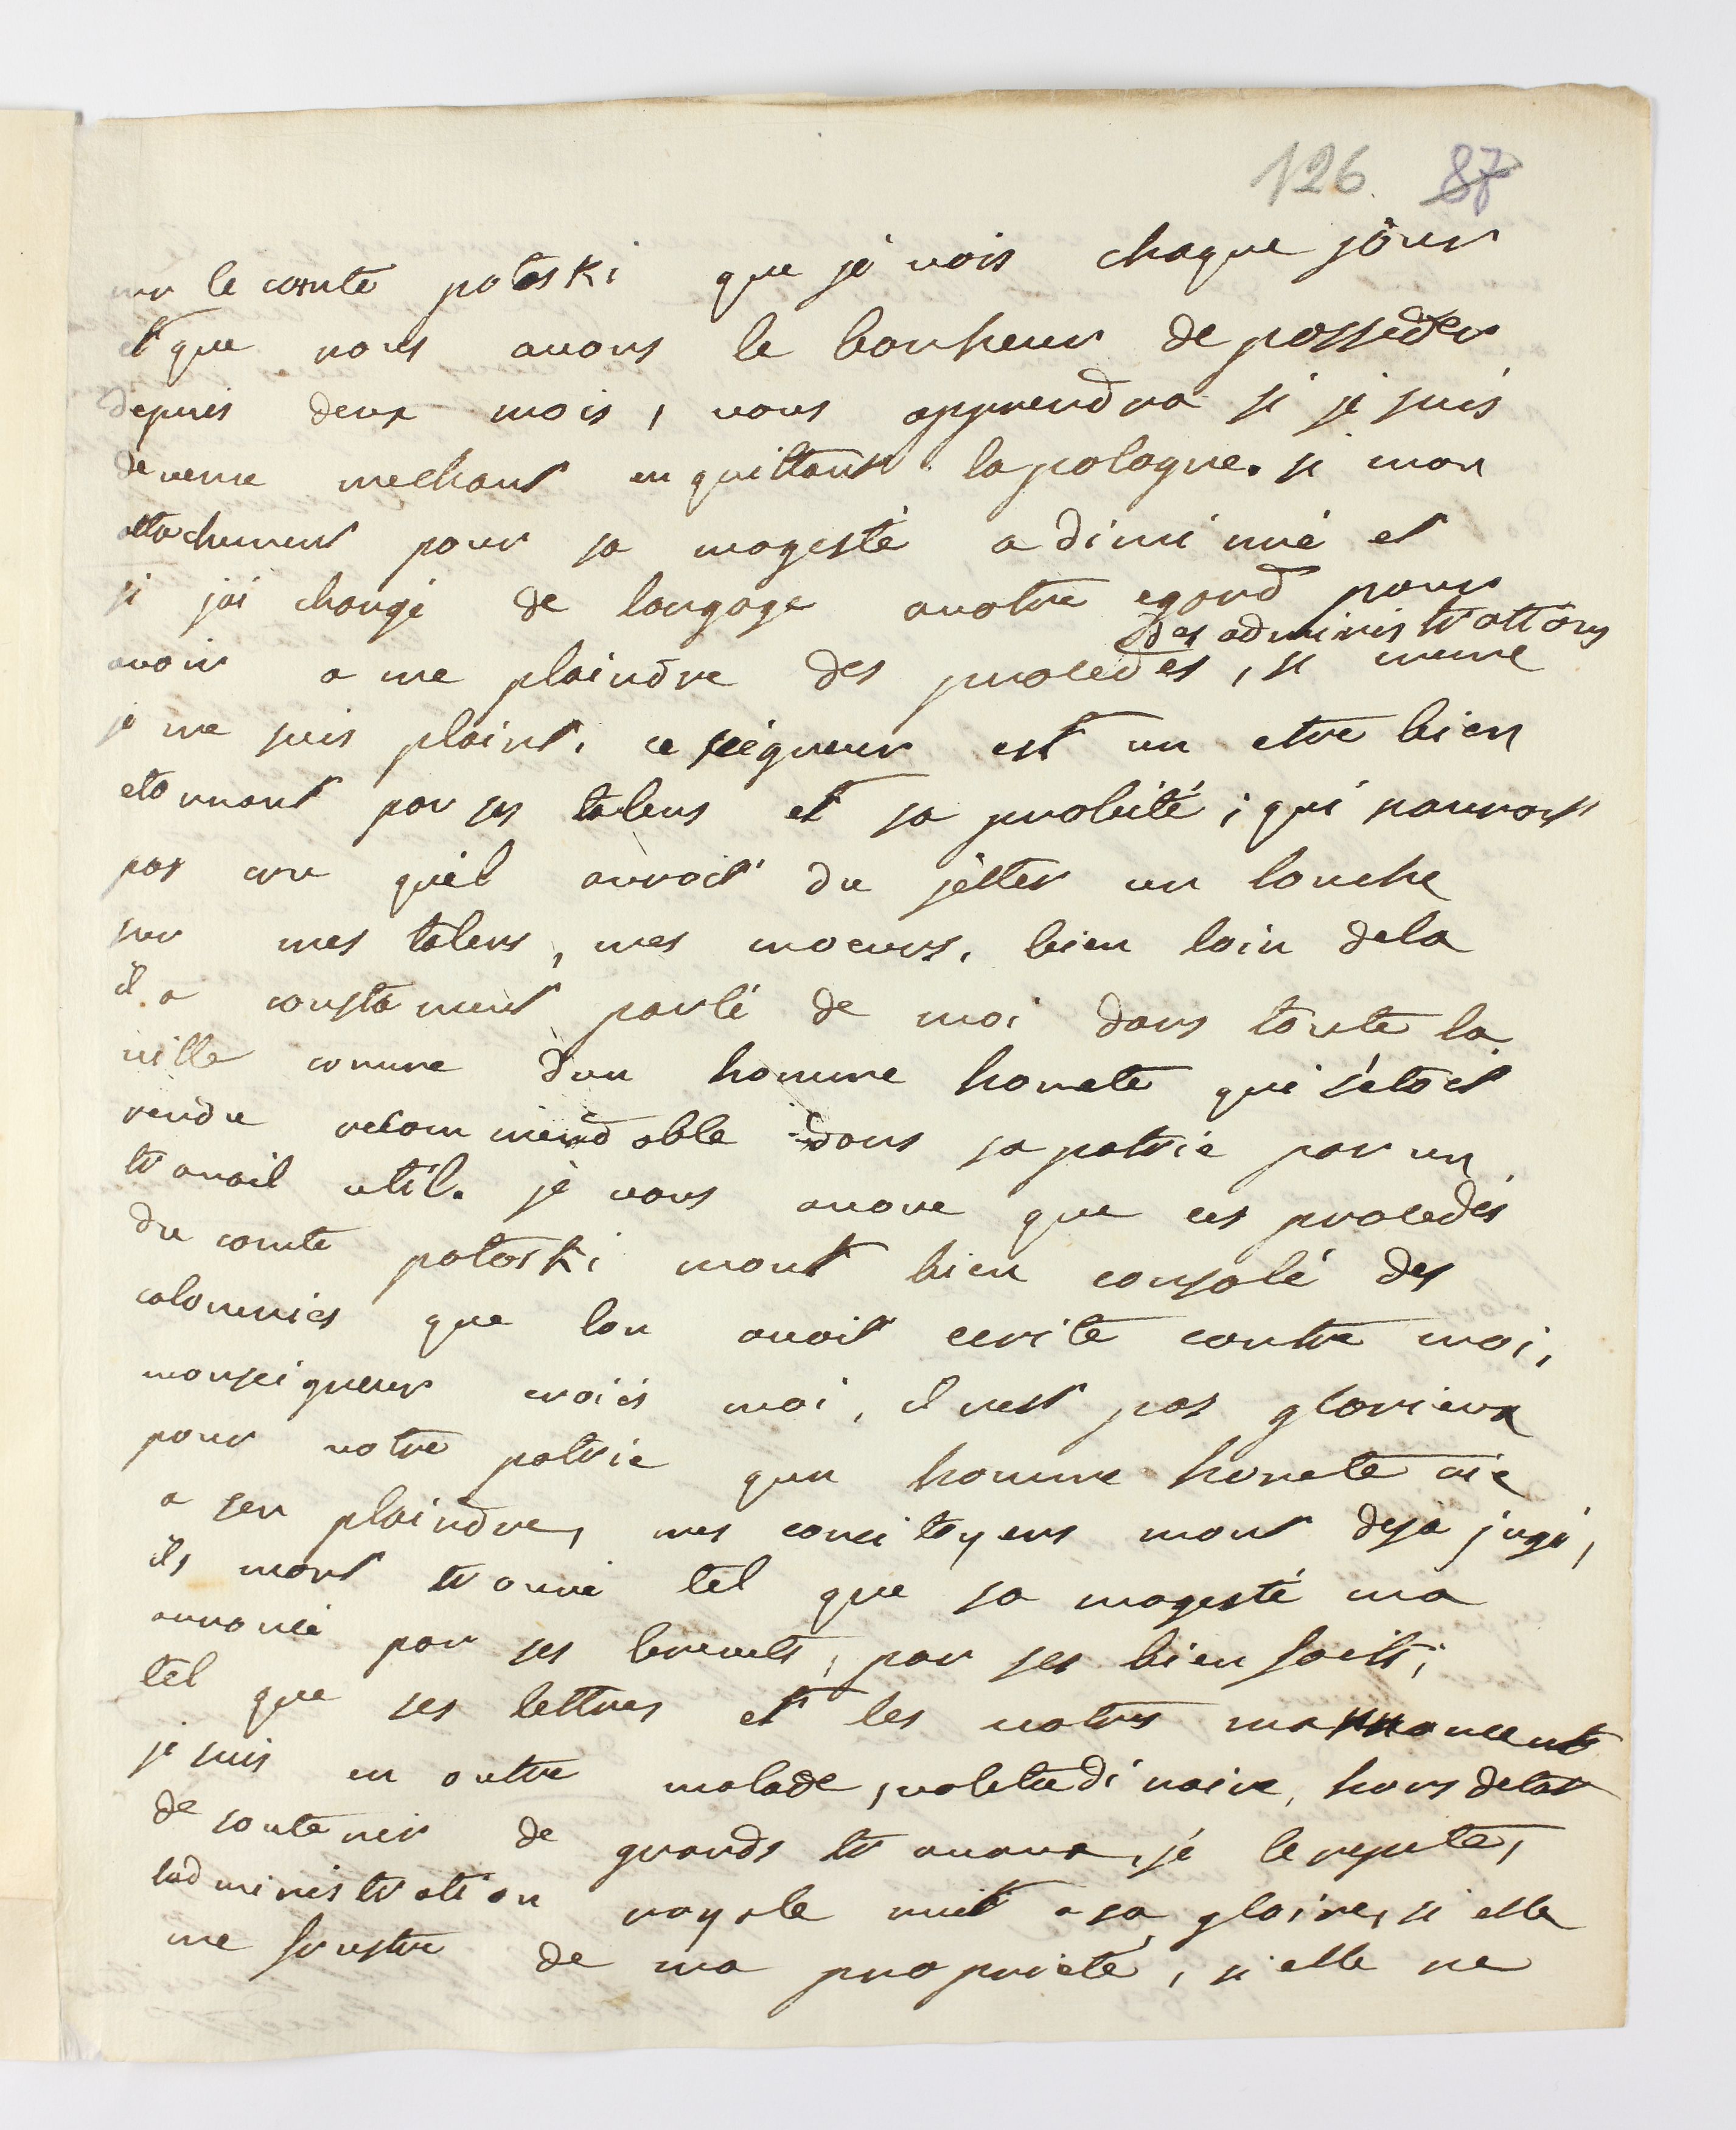 126. 87
mr le comte potoski que je vois chaque jour
et que nous avons le bonheur de posseder
depuis deux mois, vous apprendra si je suis
devenu mechant en quittant la pologne. si mon
attachement pour sa magesté a diminué et
si jai changé de langage avotre egard pour
des administrations
avoir a me plaindre des procedes, si meme
je me suis plaint. ce seigneur est un etre bien
etonnant par ses talens et sa probité; qui nauroit
pas cru quil auroit du jetter un louche
sur mes talens, mes moeurs. bien loin dela
il a constament parlé de moi dans toute la
ville comme dun homme honete qui sétoit
rendu recommendable dans sa patrie par un
travail util. je vous avoue que ces procedés
du comte potoski mont bien consolé des
calomnies que lon avoit ecrite contre moi,
monseigneur croiés moi, il nest pas glorieux
pour votre patrie qun homme honete aie
a sen plaindre, mes concitoyens mont deja jugé,
ils mont trouvé tel que sa magesté ma
annoncé par ses brevets, par ses bienfaits;
tel que ses lettres et les votres mannoncent
je suis en outre malade, valetudinaire, hors detat
de soutenir de grands travaux, je le repete,
ladministration royale nuit a sa gloire, si elle
me frustre de ma proprieté, si elle ne